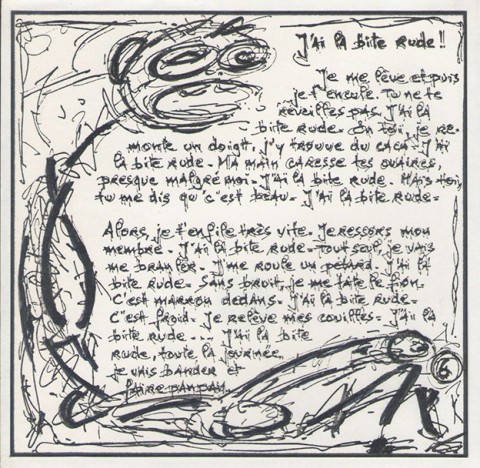 J'ai la bite rude !!
Je me lève et puis
je t'encule. Tu ne te
réveilles pas. J'ai la
bite rude. En toi, je re-
monte un doigt, j'y trouve du caca. J'ai
la bite rude. Ma main caresse tes ovaires,
presque malgré moi. J'ai la bite rude. Mais toi,
tu me dis qu'c'est beau. J'ai la bite rude.
Alors, je t'enfile très vite. Je ressors mon
membre. J'ai la bite rude. Tout seul, je vais
me branler. J'me roule un pétard. J'ai la
bite rude. Sans bruit, je me tâte le fion.
C'est marron dedans. J'ai la bite rude.
C'est froid. Je relève mes couilles. J'ai la
bite rude... J'ai la bite
rude, toute la journée,
je vais bander et
faire panpan.